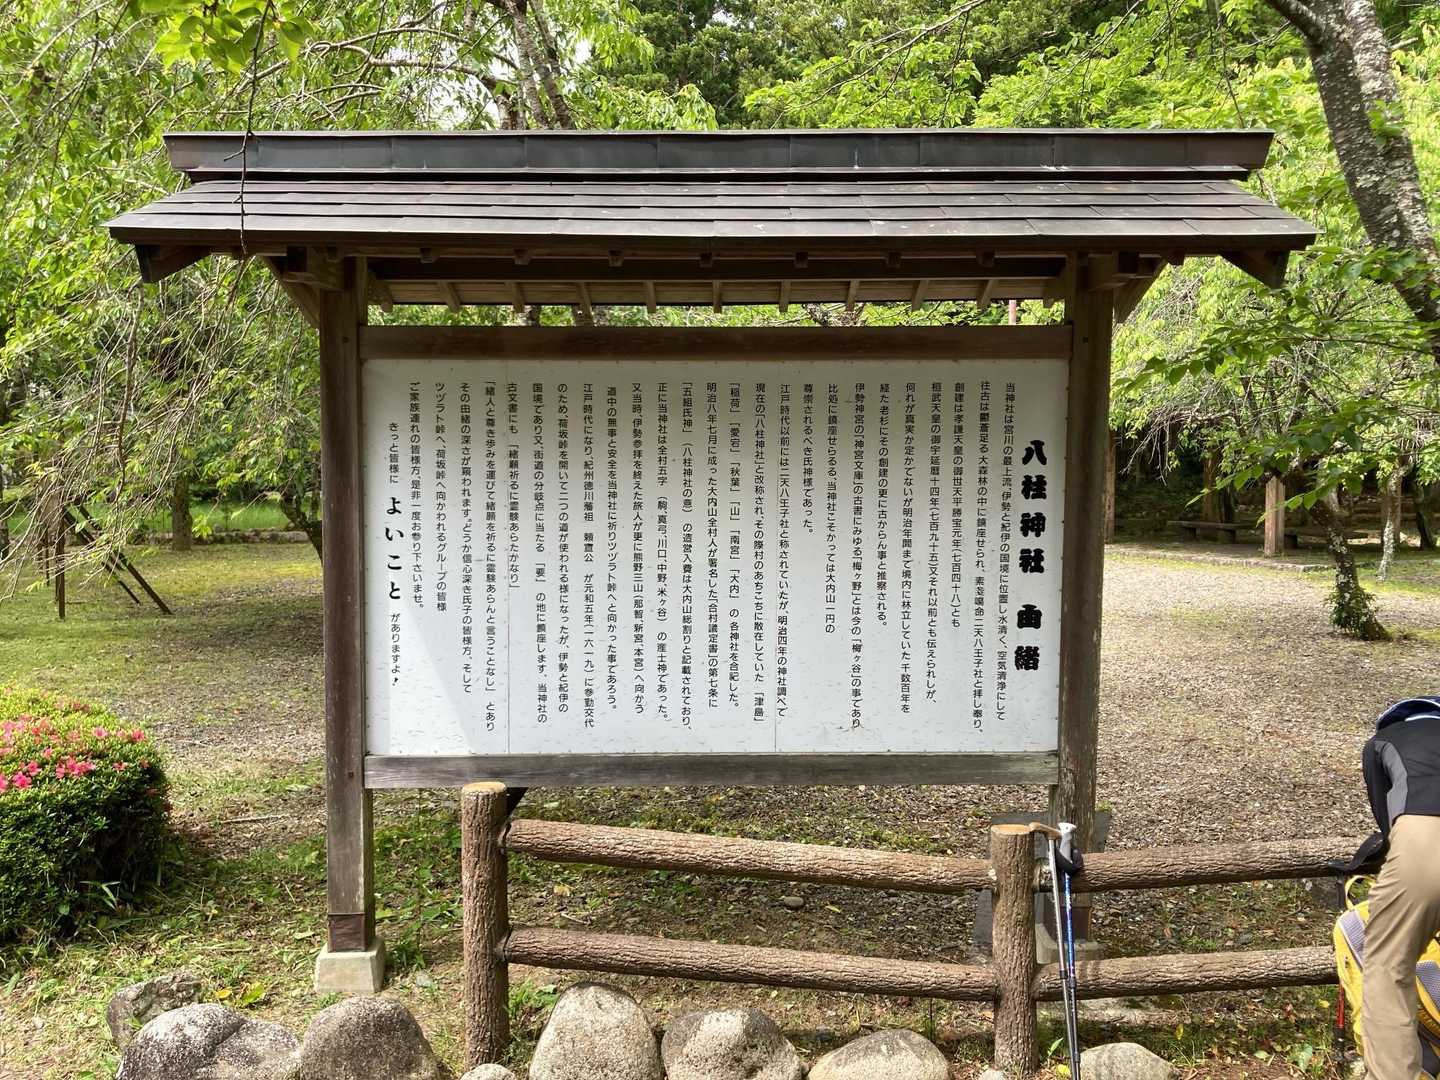 八柱神社 由緒
当神社は宮川の最上流、伊勢と紀伊の国境に位置し水清く、空気清浄にして
往古は鬱蒼足る大森林の中に鎮座せられ、素戔嗚命二天八王子社と拝し奉り、
創建は孝謙天皇の御世天平勝宝元年(七百四十八)とも
桓武天皇の御宇延暦十四年(七百九十五)又それ以前とも伝えられしが、
何れが真実か定かでないが明治年間まで境内に林立していた千数百年を
経た老杉にその創建の更に古からん事と推察される。
伊勢神宮の「神宮文庫」の古書にみゆる「梅ヶ野」とは今の「栂ヶ谷」の事であり
比処に鎮座せらるる、当神社こそかっては大内山一円の
尊崇されるべき氏神様であった。
江戸時代以前には二天八王子社と称されていたが、明治四年の神社調べで
現在の「八柱神社」と改称され、その際村のあちこちに散在していた「津島」
「稲荷」「愛宕」「秋葉」「山」「南宮」「大内」の各神社を合祀した。
明治八年七月に成った大内山全村人が署名した「合村議定書」の第七条に
「五組氏神」(八柱神社の意)の造営入費は大内山総割りと記載されており、
正に当神社は全村五字(駒、真弓、川口、中野、米ヶ谷)の産士神であった。
又当時、伊勢参拝を終えた旅人が更に熊野三山(那智、新宮、本宮)へ向かう
道中の無事と安全を当神社に祈りツヅラト峠へと向かった事であろう。
江戸時代になり、紀州徳川藩祖 頼宣公 が元和五年(一六一九)に参勤交代
のため、荷坂峠を開いて二つの道が使われる様になったが、伊勢と紀伊の
国境であり又、街道の分岐点に当たる「要」の地に鎮座します、当神社の
古文書にも「緒願祈るに霊験あらたかなり」
「緒人と尊き歩みを運びて緒願を祈るに霊験あらんと言うことなし」とあり
その由緒の深さが窺われます。どうか信心深き氏子の皆様方、そして
ツヅラト峠へ、荷坂峠へ向かわれるグループの皆様
ご家族連れの皆様方、是非一度お参り下さいませ。
きっと皆様に よいこと がありますよ!